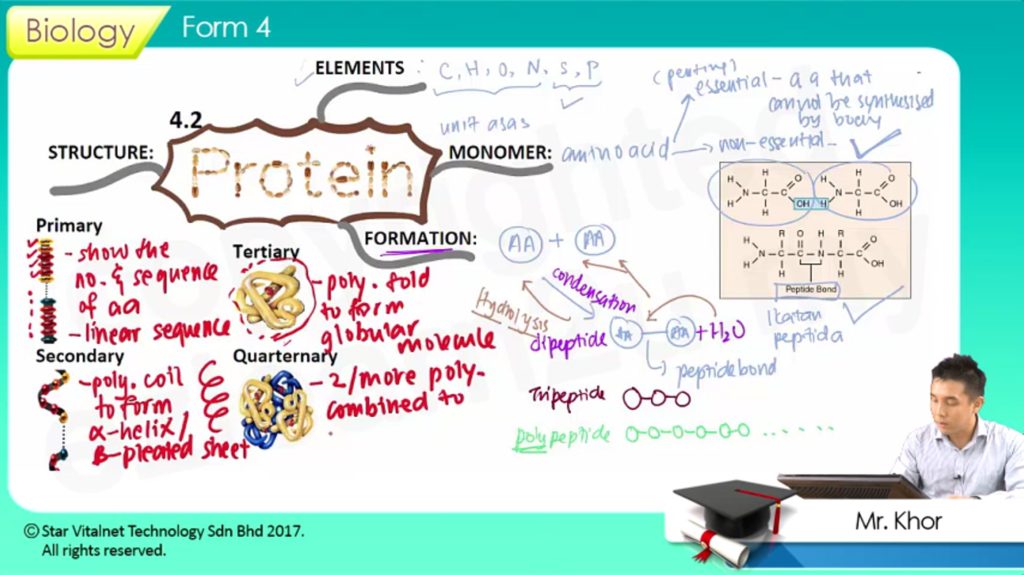 Biology
Form 4
ELEMENTS : C, H, O, N, S, P
4.2
Protein
STRUCTURE:
unit asas
MONOMER: amino acid
(penting)
essential - aa that
cannot be synthesised
by body
non-essential -
FORMATION:
AA + AA
condensation
Hydrolysis
dipeptide AA AA + H2O
peptide bond
Tripeptide
polypeptide ......
H H O H H O
N C C N C C
H H OH H H OH
H R O H R O
N C C N C C
H H H OH
Peptide Bond
Ikatan
peptida
Primary
- show the
no. & sequence
of aa
- linear sequence
Secondary
- poly. coil
to form
α-helix/
B-pleated sheet
Tertiary
- poly. fold
to form
globular
molecule
Quarternary
- 2/more poly-
combined to
© Star Vitalnet Technology Sdn Bhd 2017.
All rights reserved.
Mr. Khor